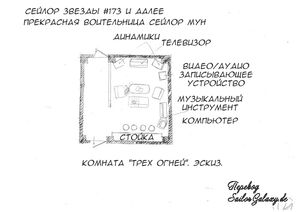 СЕЙЛОР ЗВЕЗДЫ #173 И ДАЛЕЕ
ПРЕКРАСНАЯ ВОИТЕЛЬНИЦА СЕЙЛОР МУН
ДИНАМИКИ
ТЕЛЕВИЗОР
ВИДЕО/АУДИО
ЗАПИСЫВАЮЩЕЕ
УСТРОЙСТВО
МУЗЫКАЛЬНЫЙ
ИНСТРУМЕНТ
КОМПЬЮТЕР
СТОЙКА
КОМНАТА "ТРЕХ ОГНЕЙ". ЭСКИЗ.
Перевод
SailorGalaxy.de